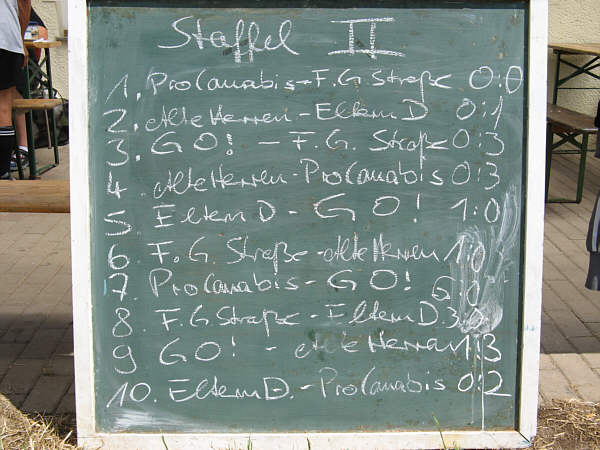 Staffel II
1. ProCanabis - F.G. Straße 0:0
2. Alte Herren - Eltern D 0:1
3. GO! - F.G. Straße 0:3
4. Alte Herren - ProCanabis 0:3
5. Eltern D - GO! 1:0
6. F.G. Straße - Alte Herren 1:0
7. ProCanabis - GO! :0
8. F.G. Straße - Eltern D. 3:0
9. GO! - Alte Herren 1:3
10. Eltern D. - ProCanabis 0:2